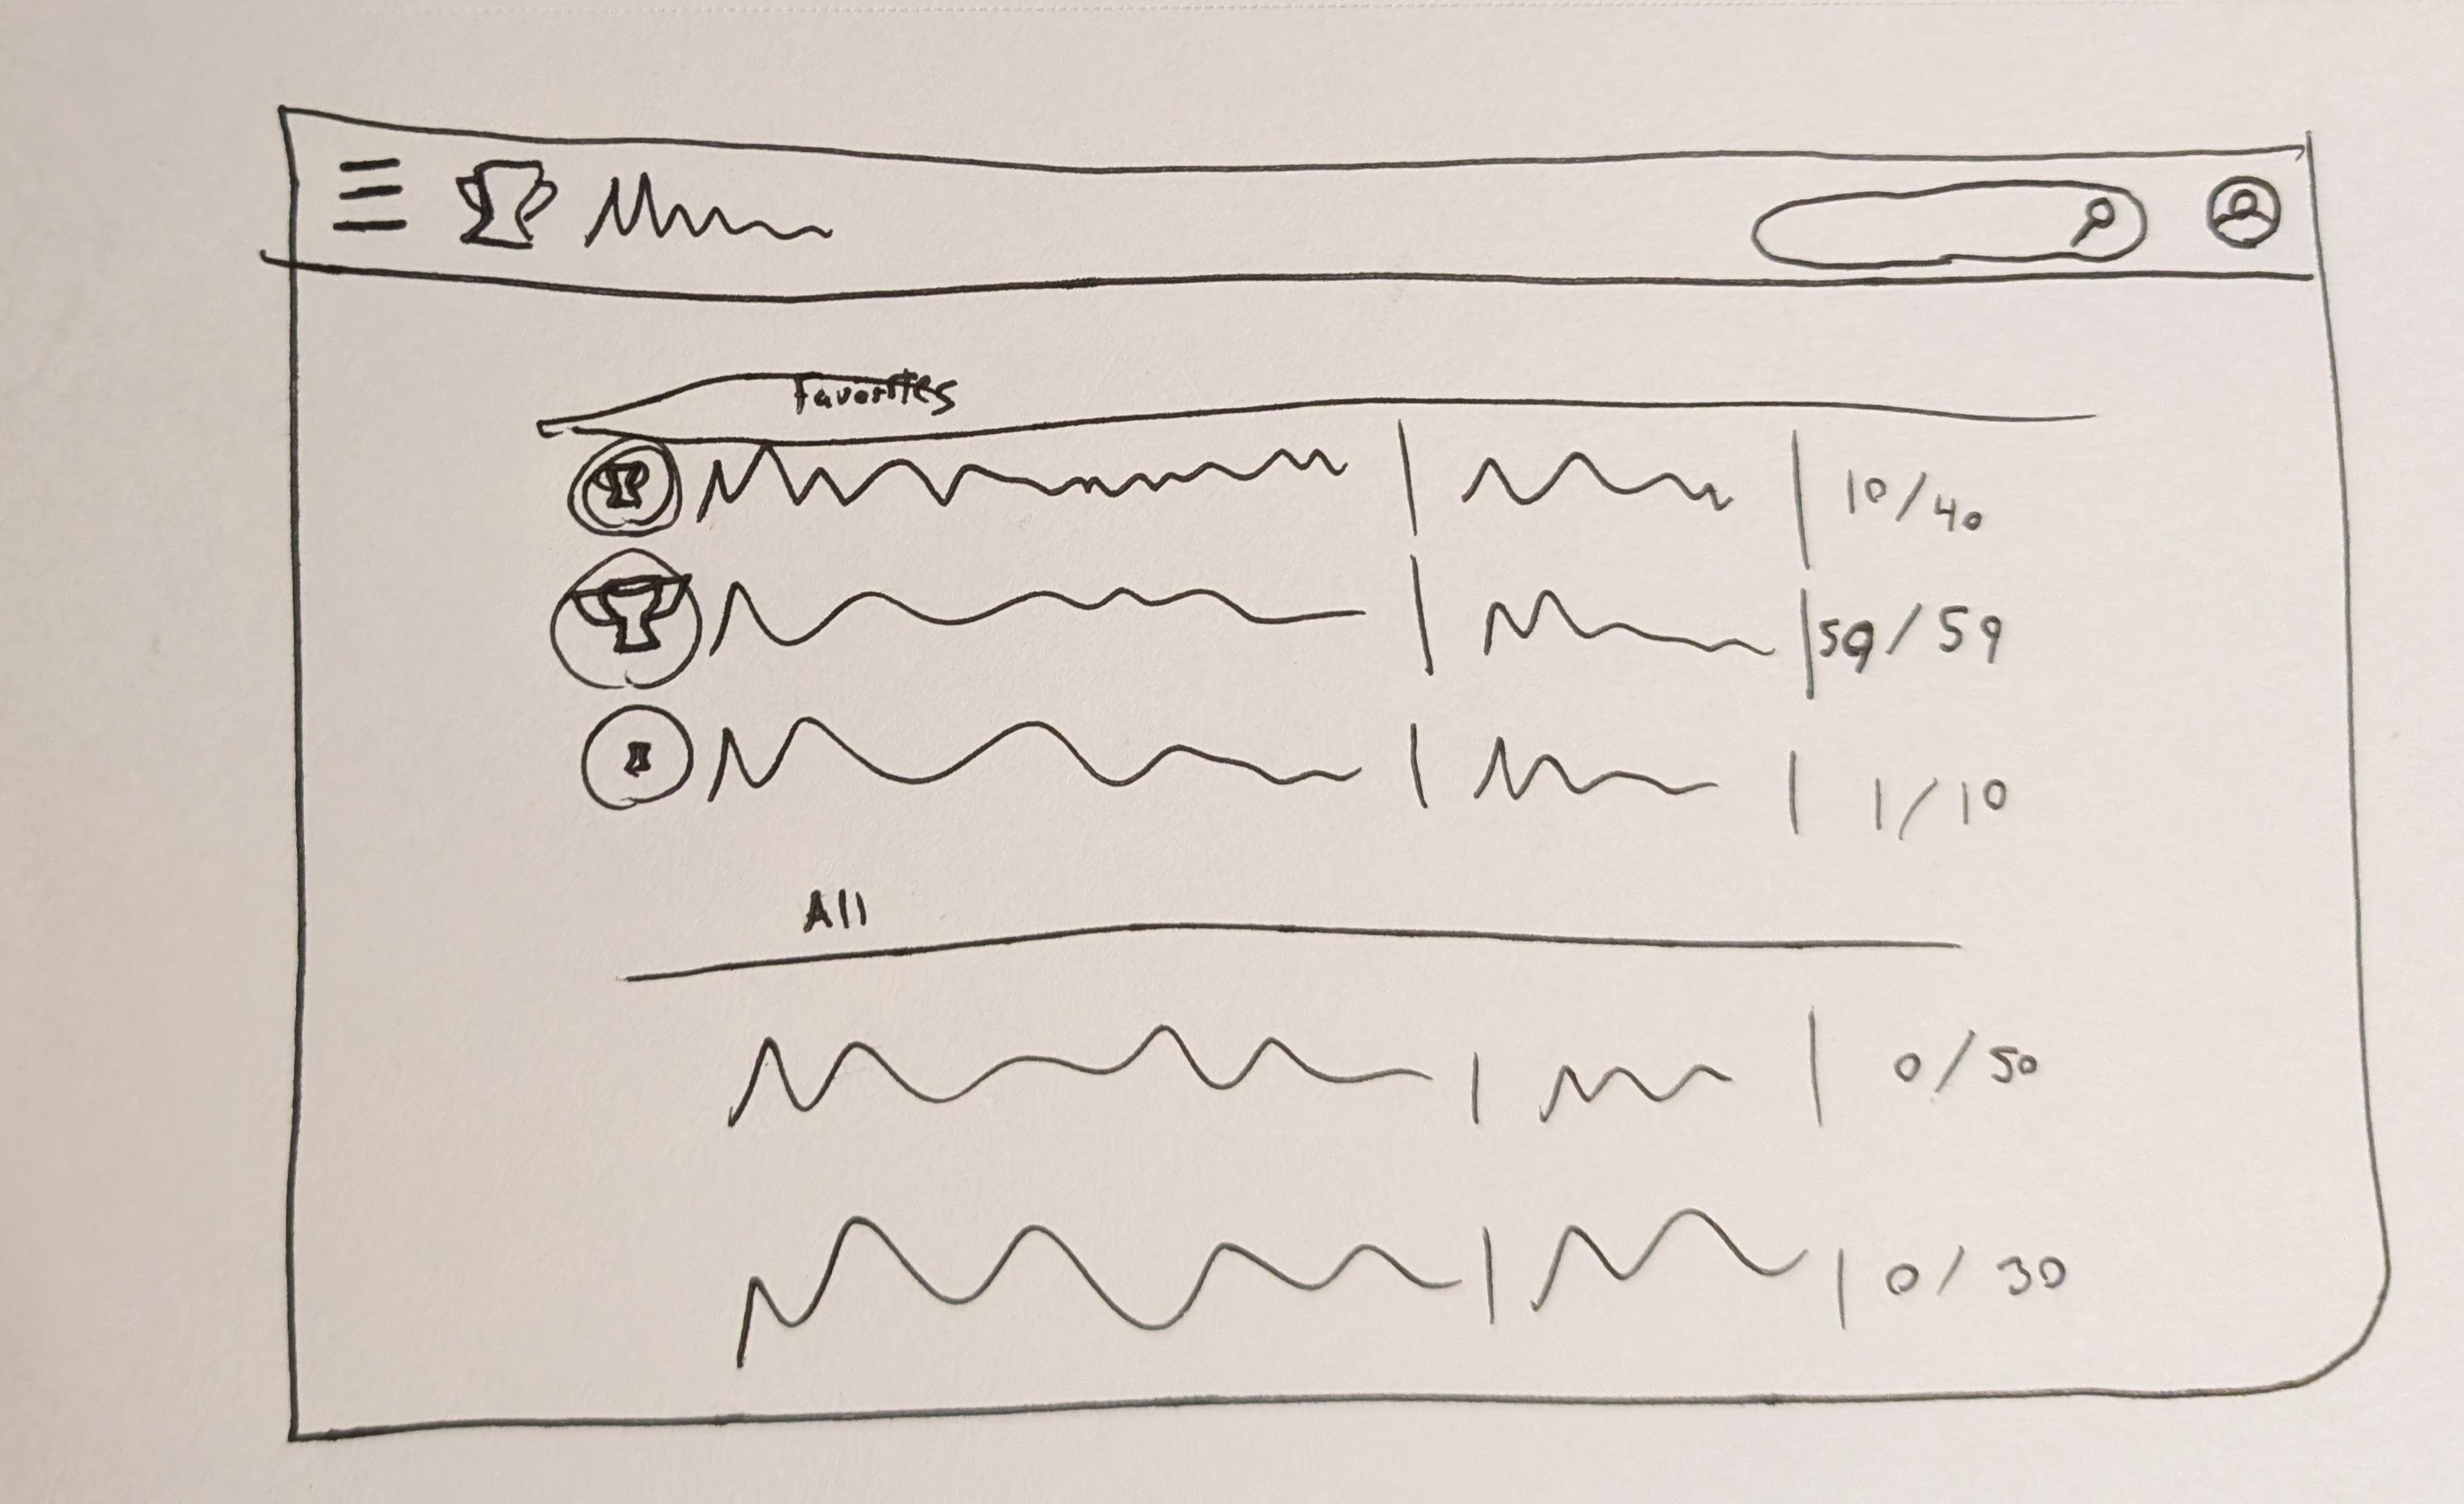 Favorites
10/40
59/59
1/10
All
0/50
0/30